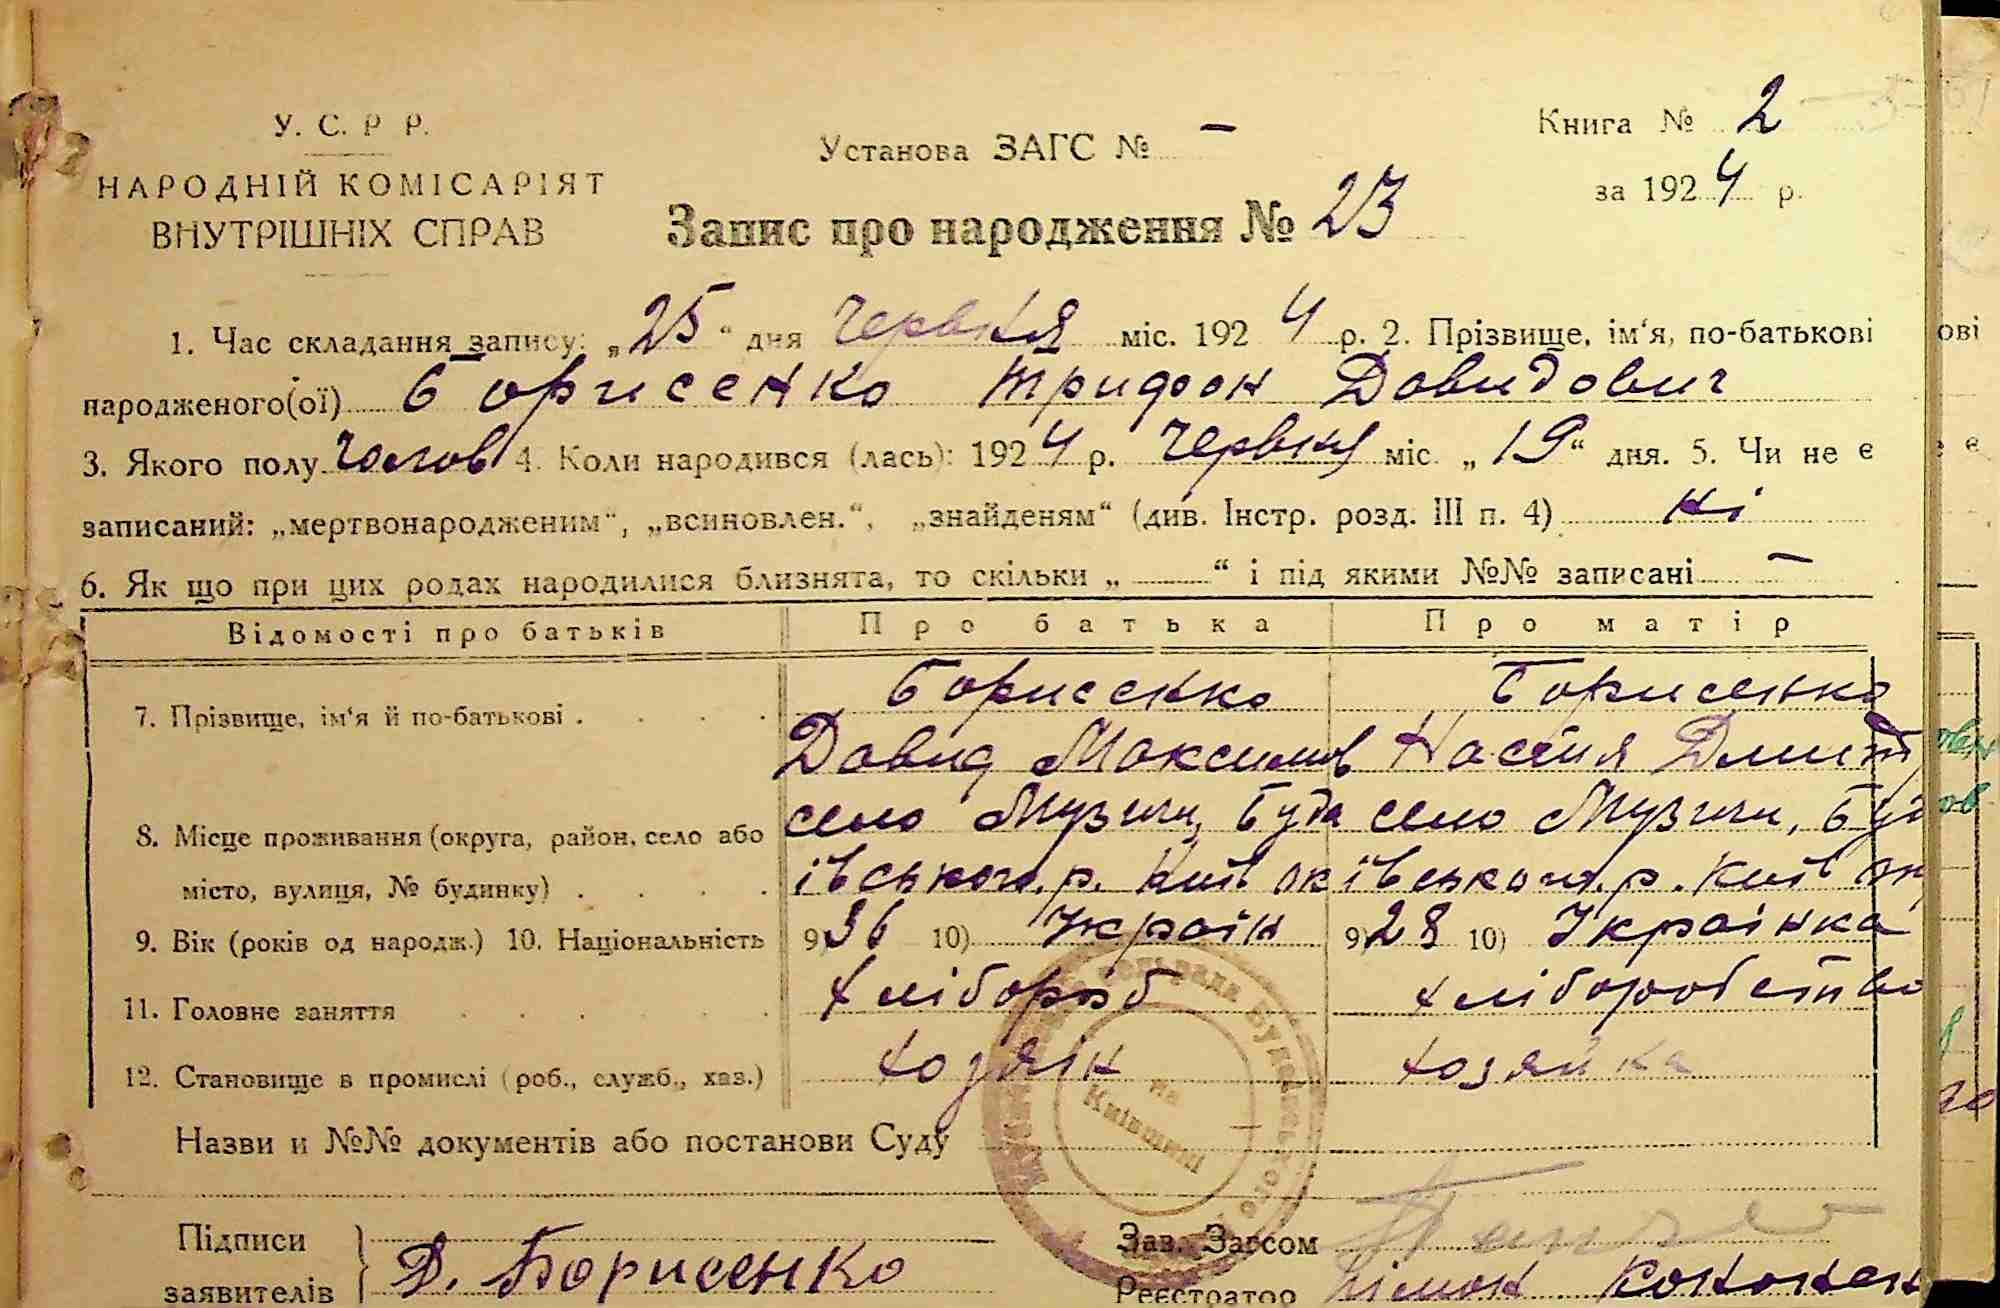 У. С. Р Р.
НАРОДНІЙ КОМІСАРІЯТ
ВНУТРІШНІХ СПРАВ
Установа ЗАГС № –
Книга № 2
за 1924 р.
Запис про народження № 23
1. Час складання запису: „25“ дня Червня міс. 1924 р. 2. Прізвище, ім‘я, по-батькові
народженого(ої) Борисенко Трифон Давидович
3. Якого полу чолов 4. Коли народився (лась): 1924 р. Червня міс. „19“ дня. 5. Чи не є
записаний: „мертвонародженим“, „всиновлен.“, „знайденям“ (див. Інстр. розд. III п. 4) ні
6. Як що при цих родах народилися близнята, то скільки „ “ і під якими №№ записані –
Відомості про батьків Про батька Про матір
7. Прізвище, ім‘я й по-батькові . Борисенко Борисенко
Давид Максимов Настя Дмит
8. Місце проживання (округа, район, село або село Музичи, Буда село Музичи, Буд
місто, вулиця, № будинку) . ївського р. Київ ок ївського р. Київ ок
9. Вік (років од народж.) 10. Національність 9) 36 10) Україн 9) 28 10) Українка
11. Головне заняття хлібороб хлібороботво
12. Становище в промислі (роб., служб., хаз.) хозяін хозяйка
Назви и №№ документів або постанови Суду
сельрада Будаївського
на Київщині
Підписи
заявителів Д. Борисенко
Зав. Загсом
Реєстратор Кононен